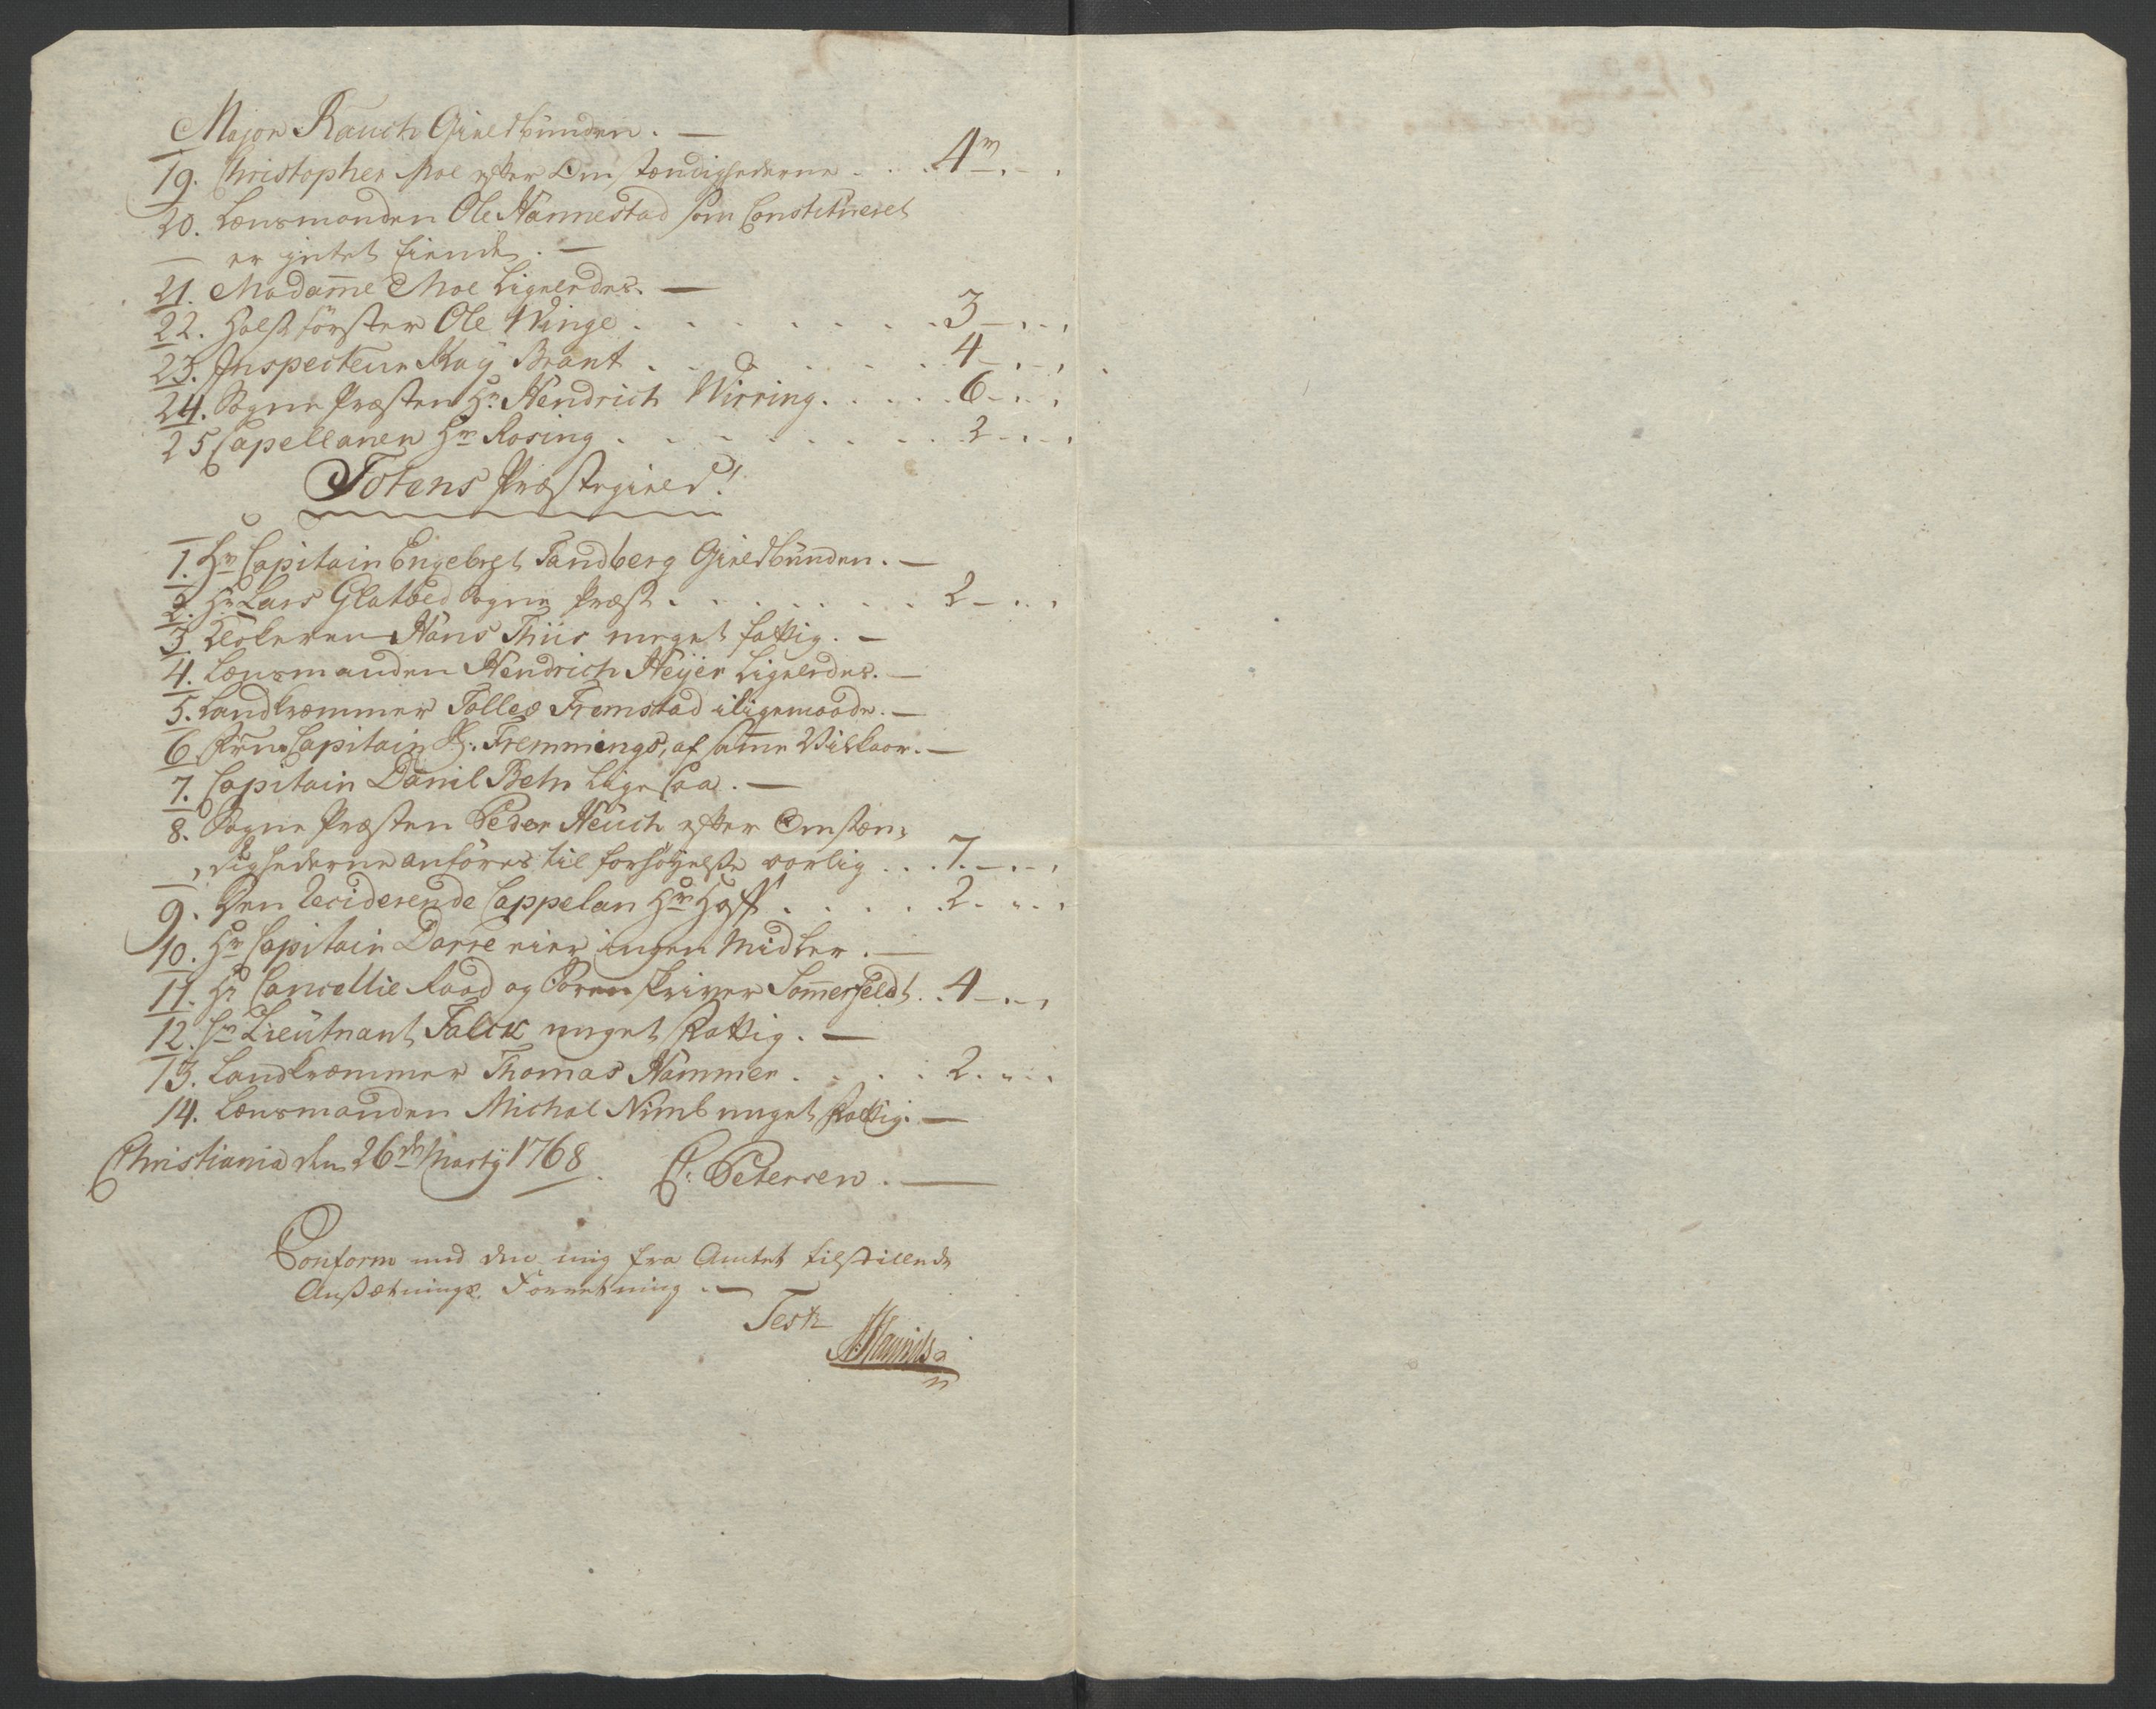 Major Rauch Gieldbunden. —
19. Christopher Moe efter Omstændighederne . . . 4 m
20. Lensmanden Ole Hannestad som Constitueret
— er intet eiende. —
21. Madame Moe Ligeledes. —
22. Holtzförster Ole Winge . . . . . . . . 3 —
23. Inspecteur Kay Brant . . . . . . . 4 —
24. Sogne Præsten Hr. Hendrich Wirring . . . . . 6 —
25 Capellanen Hr Rosing . . . . . . . . . 2 —
Totens Præstegield!
1. Hr Capitain Engebret Tandberg Gieldbunden. —
2. Hr Lars Glatved Sogne Præst . . . . . . . 2 —
3. Klokeren Hans Thiis meget fattig. —
4. Lensmanden Hendrich Heyer Ligeledes. —
5. Landkræmmer Tollef Fremstad iligemaade. —
6 Capitain Fremmings, af samme Vilkaar. —
7. Capitain Danil Behr Lige saa. —
8. Sogne Præsten Peder Heuch efter Omstæn,
— , dighederne anföres til forhöyelse aarlig . . . 7. —
9. Den Reciderende Cappelan Hr Hoff . . . . . 2.
10. Hr Capitain Darre eier ingen Midler. —
11. Hr Cancellie Raad og Sorenskriver Sommerfeldt . . 4 —
12. Hr Lieutnant Falck meget Fattig. —
13. Landkræmmer Thomas Hammer . . . . . 2.
14. Lensmanden Michal Nimb meget Fattig. —
Christiania den 26de Marty 1768. C: Petersen. —
Conform med den mig fra Amtet tilstillede
Ansætnings Forretning. —
Test